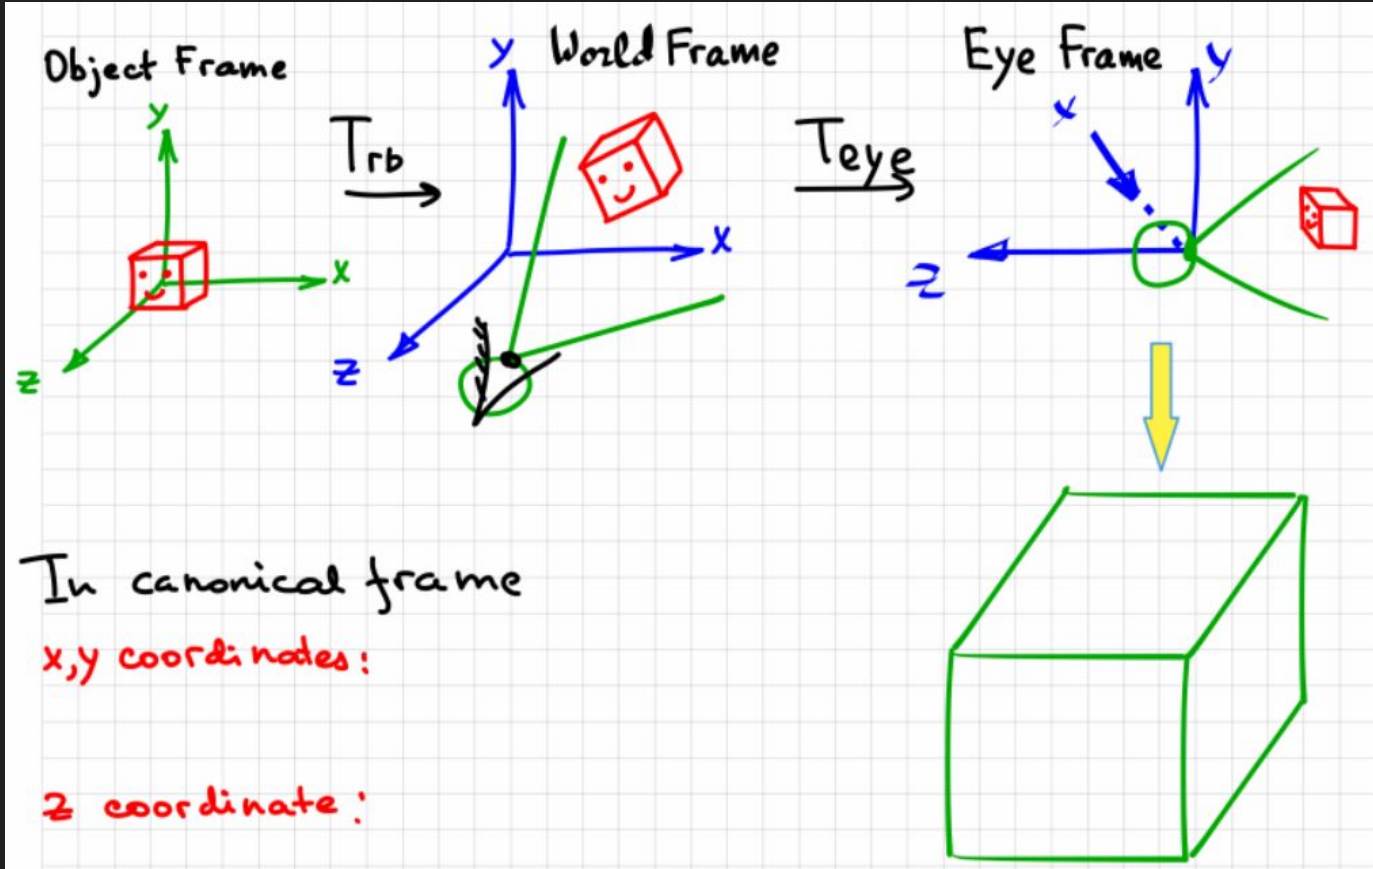 Object Frame
y
x
z
Trb
World Frame
y
x
z
Teye
Eye Frame
x
y
z
In canonical frame
x,y coordinates:
z coordinate: